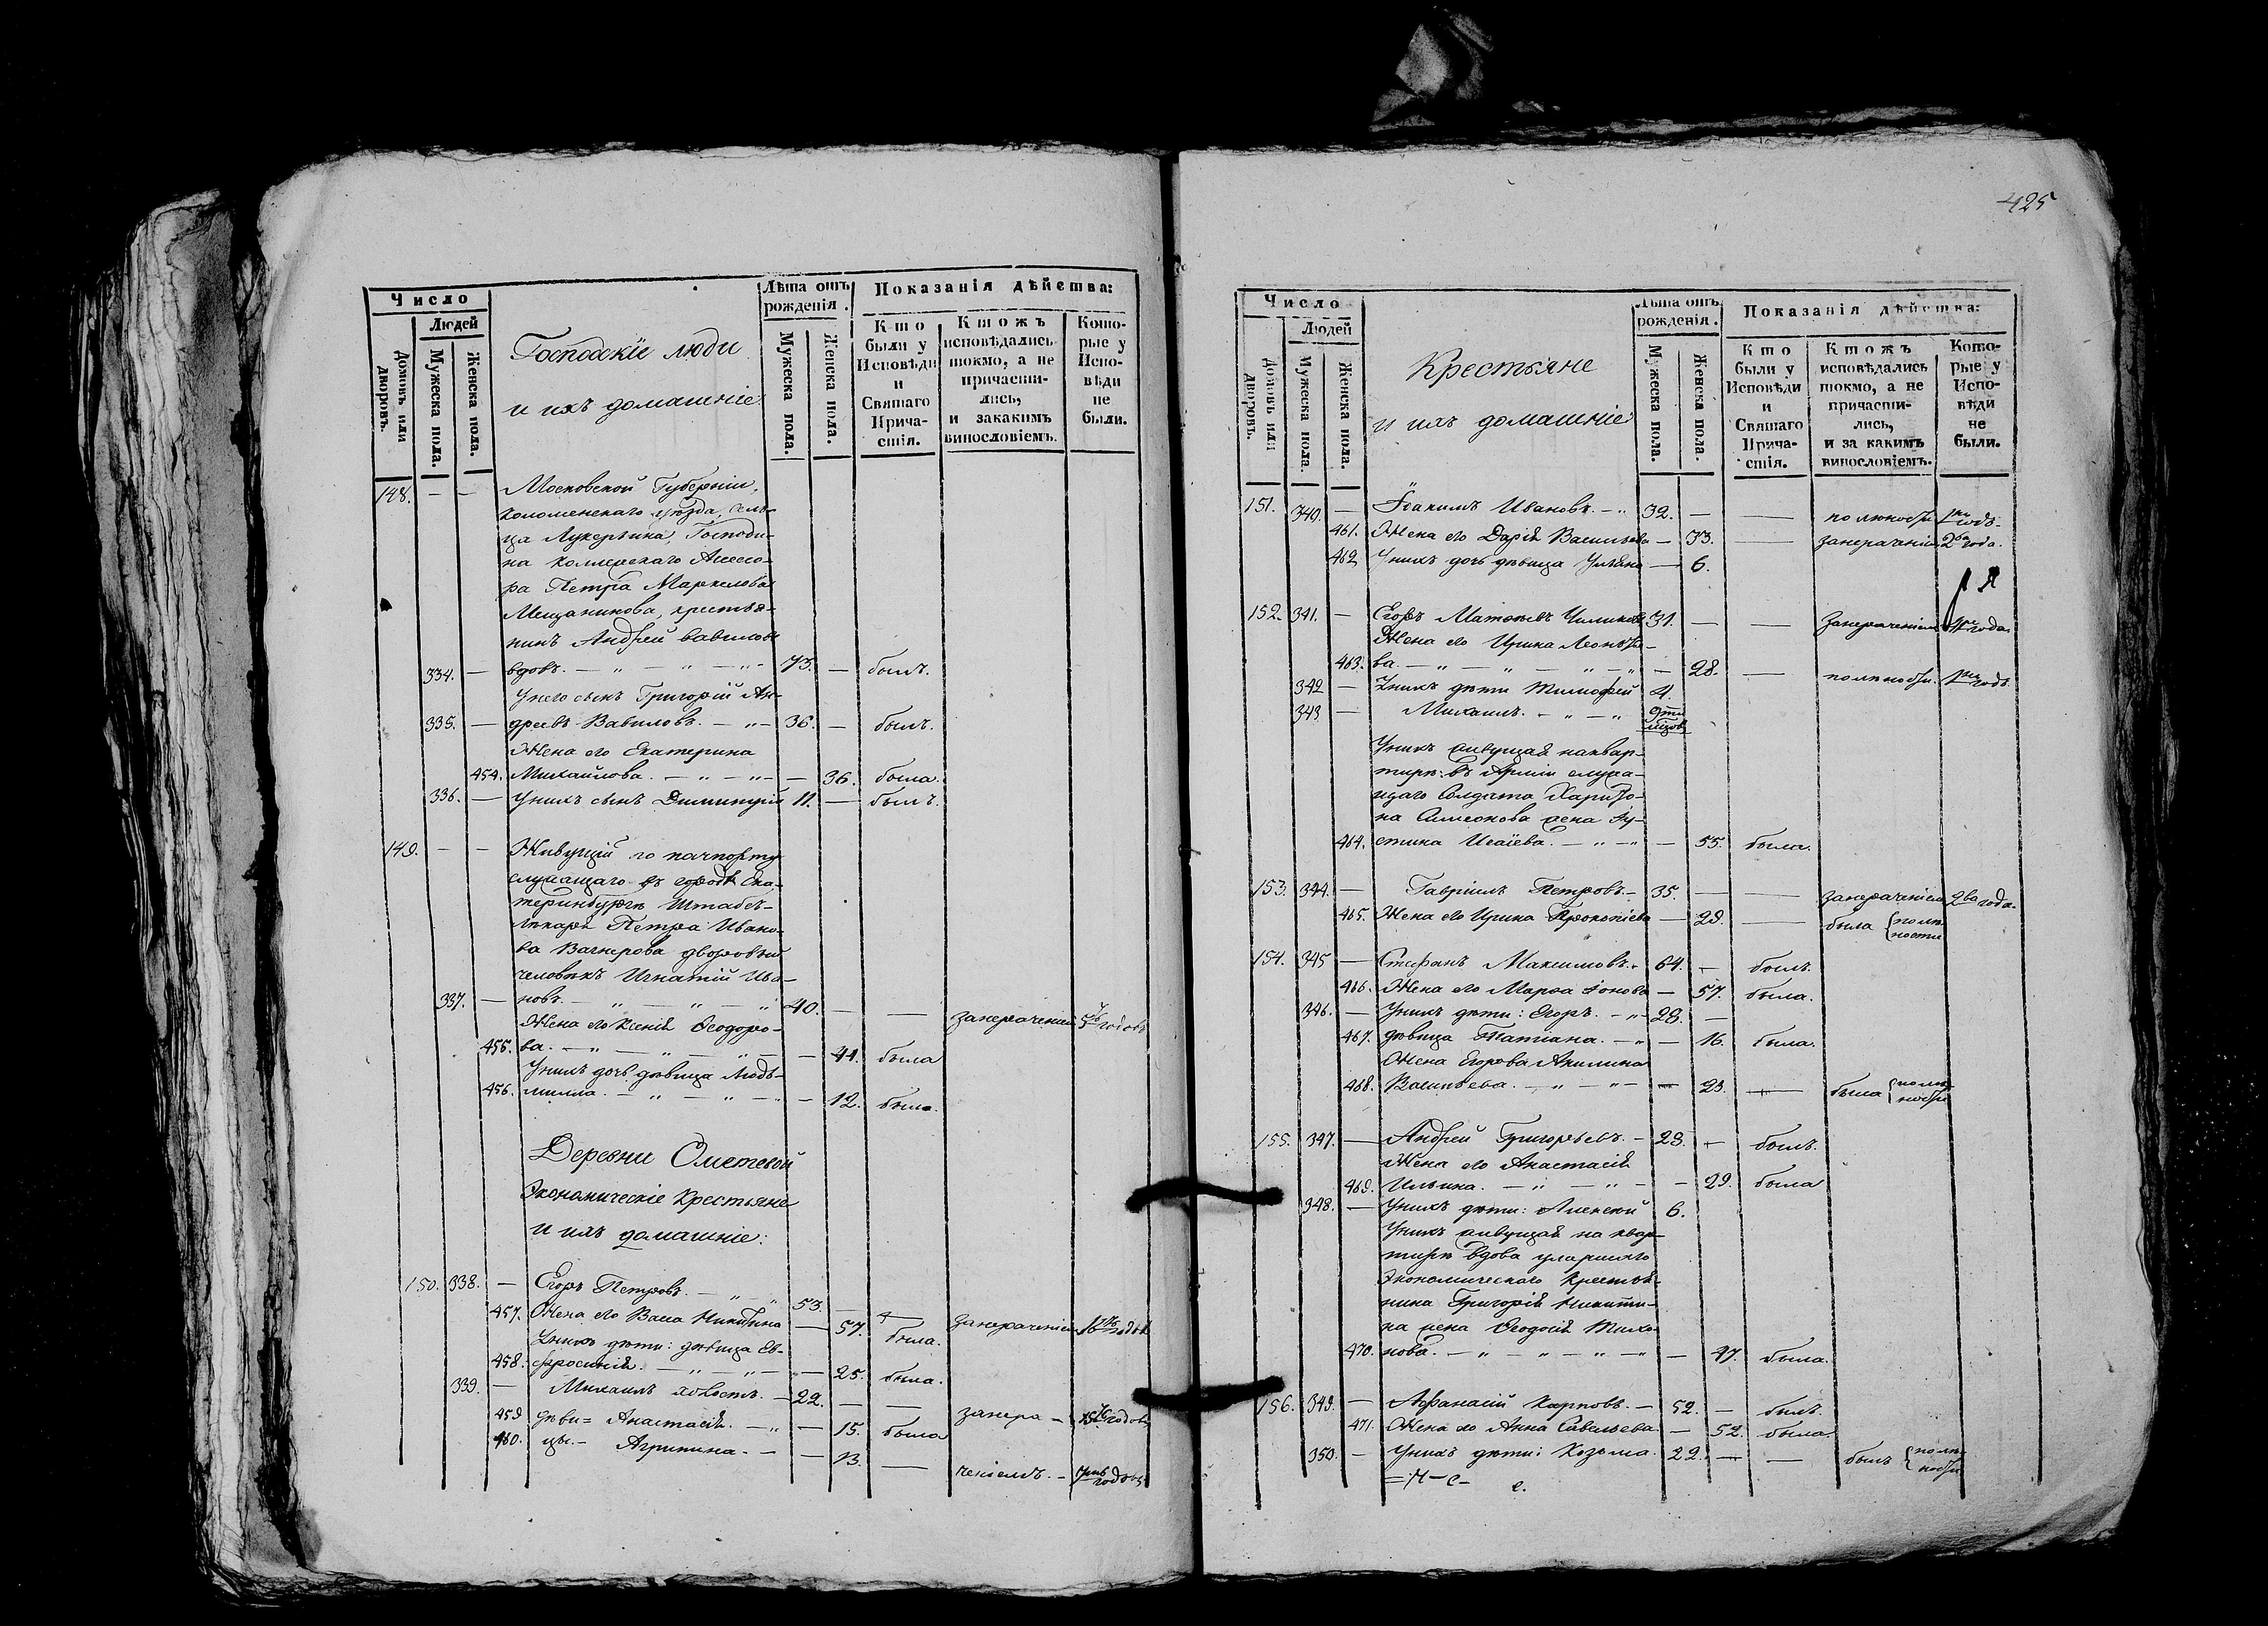 425
Число
Людей
Домовъ или дворовъ.
Мужеска пола.
Женска пола.
Господскіе люди
и ихъ домашніе
Лѣта отъ рожденія.
Мужеска пола.
Женска пола.
Показанія дѣйства:
Кто были у Исповѣди и Святаго Прича-стія.
Ктожъ исповѣдались токмо, а не причасти-лись, и закакимъ винословіемъ.
Кото-рые у Испо-вѣди не были.
148. — — Московской Губерніи,
Коломенскаго уѣзда, сель-
ца Лукерьина, Господи-
на коллежскаго Ассесо-
ра Петра Маркелова
Мещанинова, крестья-
нинъ Андрей Вавиловъ
334. — вдовъ. — „ — „ — „ — 73. — былъ.
У него сынъ Григорій Ан-
335. — дреевъ Вавиловъ. — „ — 36. — былъ.
Жена его Екатерина
454. Михайлова. — „ — „ — — 36. была.
336. — У нихъ сынъ Димитрій 11. — былъ.
149. — — Живущій по пачпорту
служащаго въ городѣ Ека-
теринбургѣ Штабъ-
лѣкаря Петра Ивано-
ва Вагнерова дворовый
человѣкъ Игнатій Ива-
337. — новъ. — „ — „ — „ 40. — — занераченіемъ 5ть годовъ
Жена его Ксенія Ѳеодоро-
455. ва. — „ — „ — „ — — 41. была
У нихъ дочь дѣвица Люд-
456. мила. — „ — „ — „ — 12. была.
Деревни Ометевой
Экономическіе Крестьяне
и ихъ домашніе:
150. 338. — Егоръ Петровъ. — „ — „ 53. — — занераченіемъ годовъ
457. Жена его Васса Никитина — 57. была.
У нихъ дѣти: дѣвица Ев-
458. фросинія. — „ — „ — „ — 25. была.
339. — Михаилъ холостъ. — 22. — — занера — годовъ
459 дѣви= Анастасія. — „ — 15. была
460. цы. — Агрипина. — — 13. — ченіемъ. — годовъ
Число
Людей
Домовъ или дворовъ.
Мужеска пола.
Женска пола.
Крестьяне
и ихъ домашніе
Лѣта отъ рожденія.
Мужеска пола.
Женска пола.
Показанія дѣйства:
Кто были у Исповѣди и Святаго Прича-стія.
Ктожъ исповѣдались токмо, а не причасти-лись, и за какимъ винословіемъ.
Кото-рые у Испо-вѣди не были.
151. 340. — Іоакимъ Ивановъ. — „ 32. — — полѣности годъ.
461. Жена его Дарія Васильева — 33. — занераченіемъ 2ва года.
462 У нихъ дочь дѣвица Уліана — 6.
152. 341. — Егоръ Матѳеевъ 31. — — занераченіемъ года.
Жена его Ирина Леонтье-
463. ва. — „ — „ — „ — „ — 28. — полѣности. годъ.
342 — У нихъ дѣти Тимофей 4.
343 — Михаилъ. — „ — „ 9ти мѣсцов.
У нихъ живущая на квар-
тирѣ: въ Арміи служа-
щаго Солдата Харито-
на Симеонова жена Іу-
464. стина Исаіева. — „ — „ — 55. была.
153. 344. — Гавріилъ Петровъ. — 35. — — занераченіемъ 2ва года.
465. Жена его Ирина Прокопіева — 29. — была {полѣности
154. 345 — Стефанъ Максимовъ. „ 64. — былъ.
466. Жена его Марѳа Іонова — 57. была.
346. — У нихъ дѣти: Егоръ. — „ — 23. —
467. дѣвица Татіана. — „ — 16. была.
Жена Егорова Акилина
468. Васильева. — „ — „ — — 23. — была {полѣности
155. 347. — Андрей Григорьевъ. — 29. — былъ.
Жена его Анастасія
469. Ильина. — „ — „ — — 29. была
348. — У нихъ дѣти: Алексѣй 6.
У нихъ живущая на квар-
тирѣ вдова умершаго
Экономическаго Крестья-
нина Григорія Никити-
на жена Ѳеодосія Тихо-
470. нова. — „ — „ — „ — „ — 47. была.
156. 349. — Афанасій Карповъ. — 52. — былъ.
471. Жена его Анна Савельева. — 52. была.
350. — У нихъ дѣти: Козьма. 22. — — былъ {полѣности